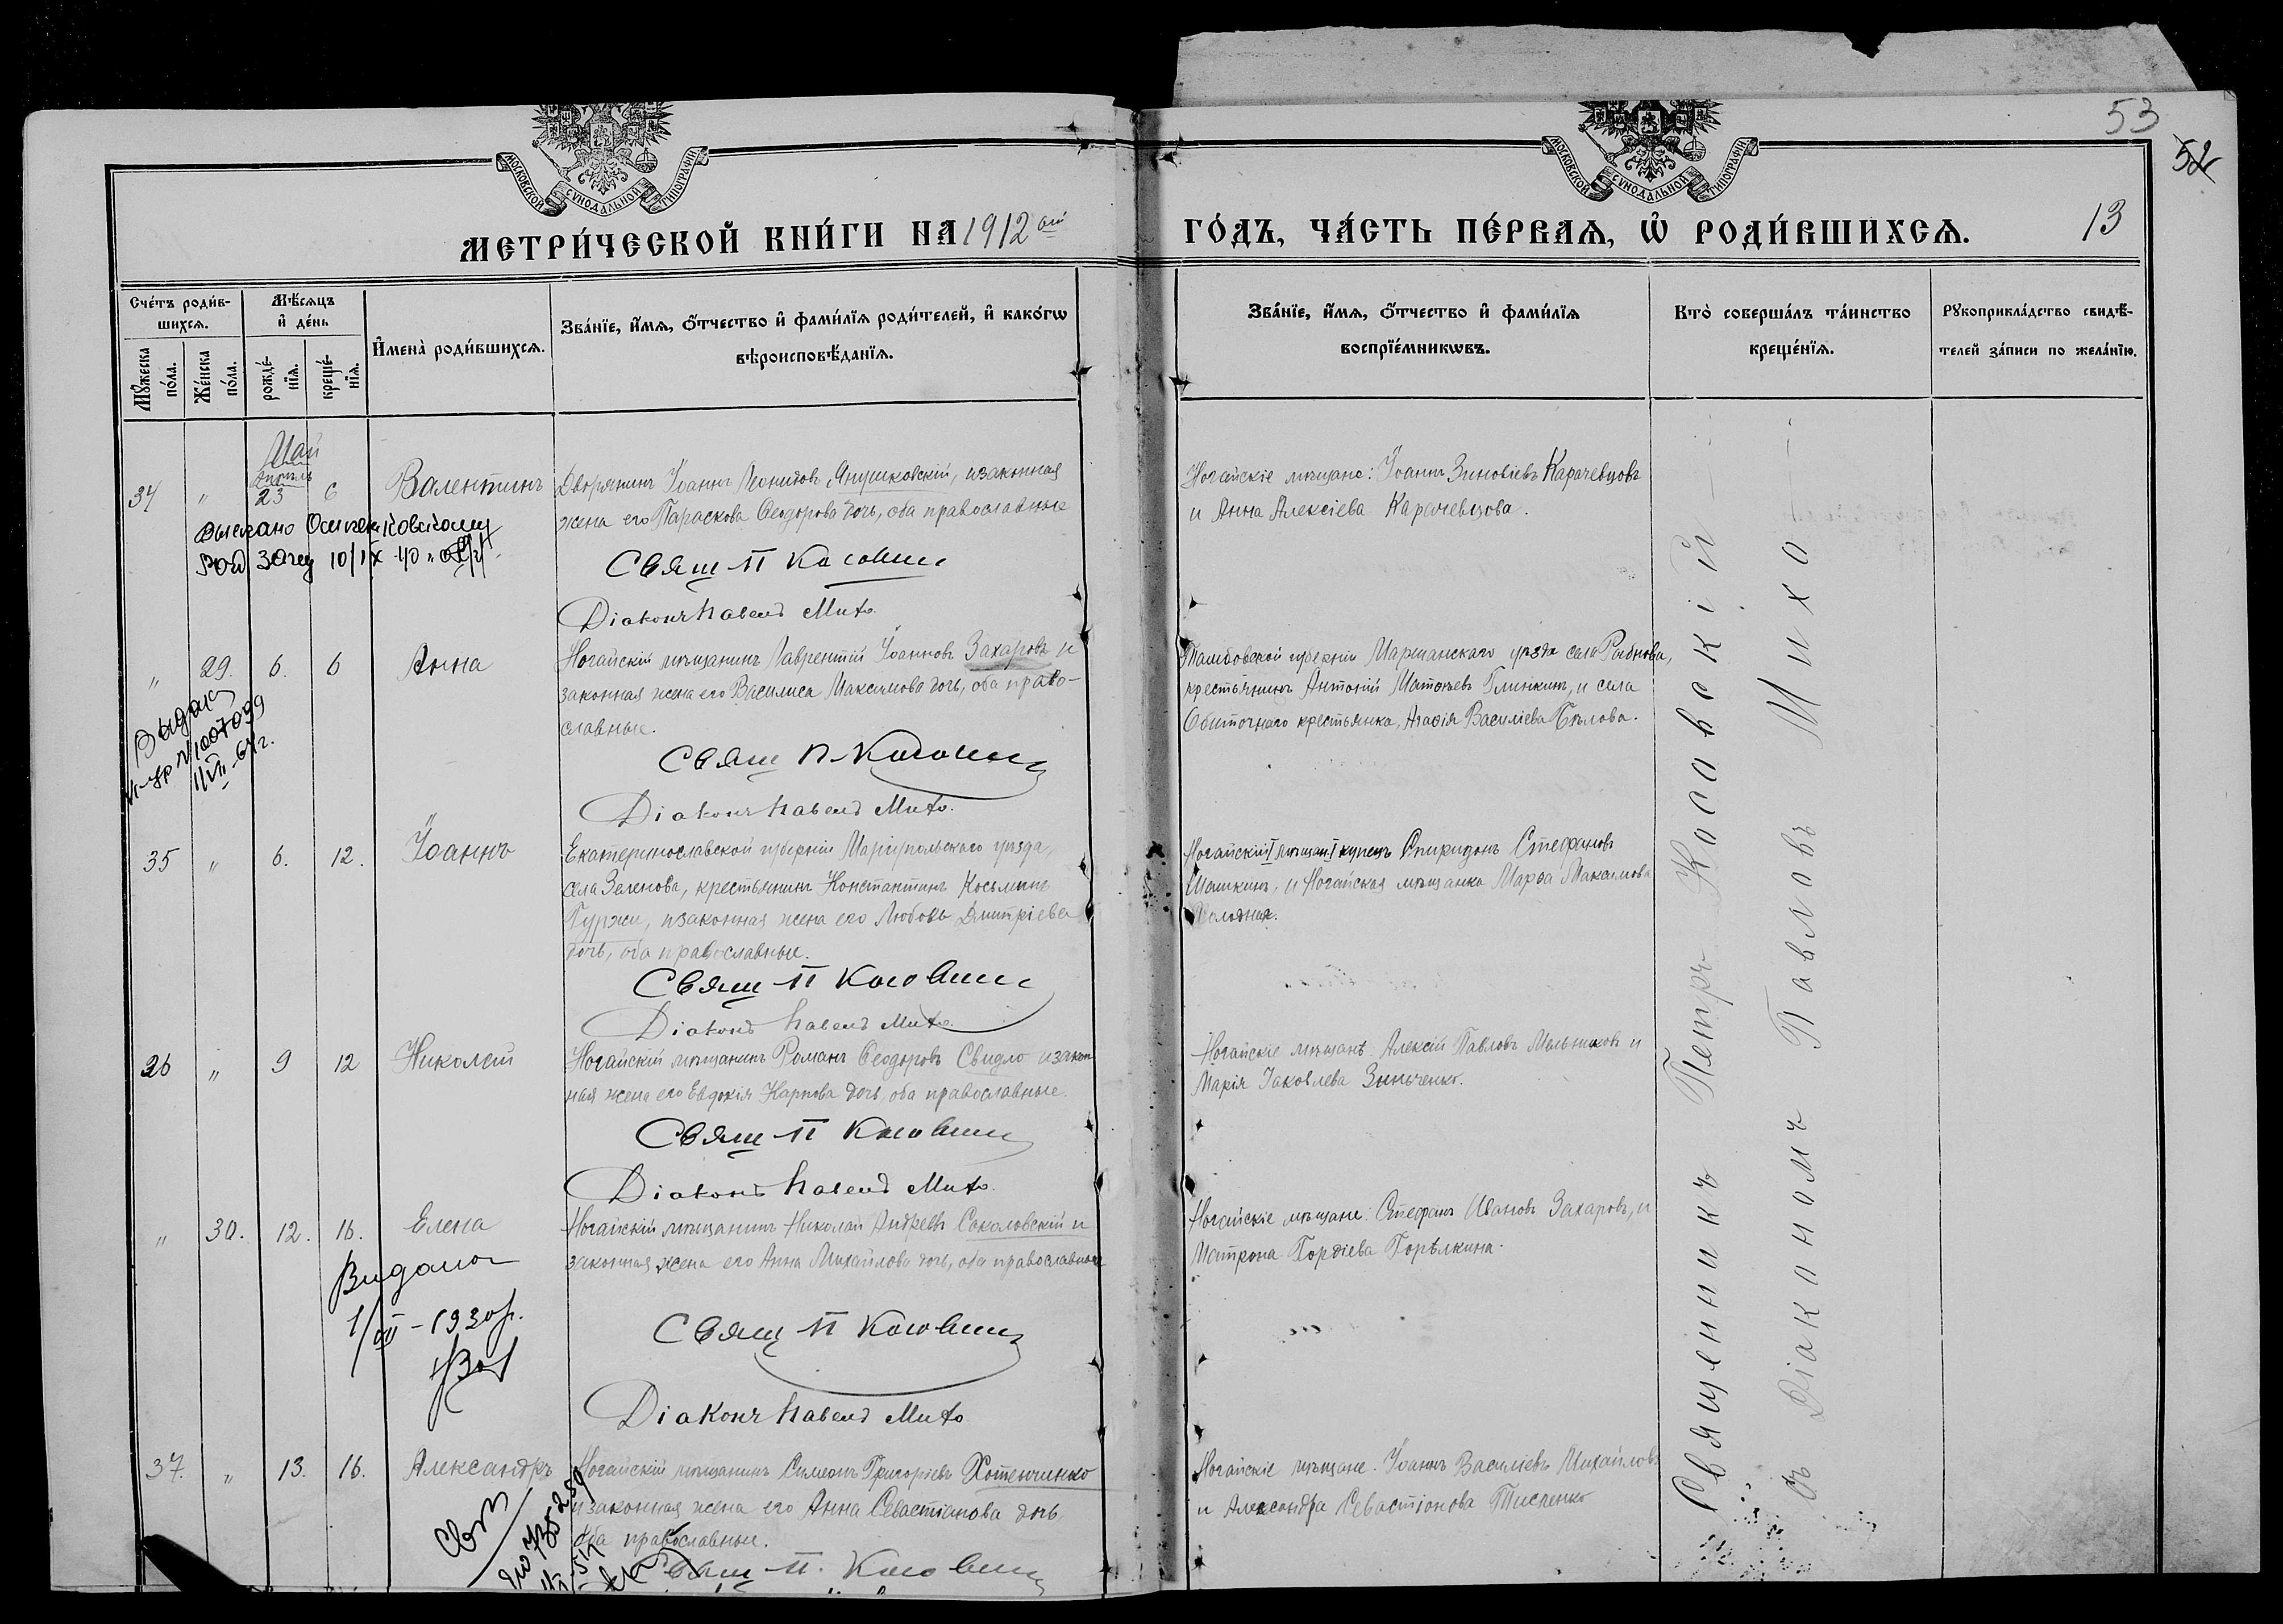 53
52
13
МОСКОВСКОЙ СѴНОДАЛЬНОЙ ТИПОГРАФІИ
МОСКОВСКОЙ СѴНОДАЛЬНОЙ ТИПОГРАФІИ
МЕТРИ́ЧЕСКОЙ КНИ́ГИ НА 1912 ый
ГО́ДЪ, ЧА́СТЬ ПЕ́РВАѦ, Ѡ҆ РОДИ́ВШИХСѦ.
Сче́тъ роди́в-
шихсѧ.
Мꙋ́жеска по́ла.
Же́нска по́ла.
Мѣ́сѧцъ
и҆ де́нь
рожде́-
нїѧ.
креще́-
нїѧ.
И҆мена̀ роди́вшихсѧ.
Зва́нїе, и҆́мѧ, ѻ҆́тчество и҆ фами́лїѧ роди́телей, и҆ како́гѡ
вѣроисповѣ́данїѧ.
Зва́нїе, и҆́мѧ, ѻ҆́тчество и҆ фами́лїѧ
воспрїе́мникѡвъ.
Кто̀ соверша́лъ та́инство
креще́нїѧ.
Рꙋкоприкла́дство свидѣ́-
телей за́писи по жела́нїю.
Май
Апрѣль
34 " 23 6 Валентинъ
Дворянинъ Іоаннъ Леонидов Янушковскій, и законная
жена его Параскева Ѳеодорова дочь, оба православные
Свящ П Косовскій
Діаконъ Павелъ Михо
Ногайскіе мѣщане: Іоаннъ Зиновіевъ Карачевцовъ
и Анна Алексіева Карачевцова.
Выслано
10/IX
" 29. 6. 6 Анна
Ногайскій мѣщанинъ Лаврентій Іоанновъ Захаровъ и
законная жена его Василиса Максимова дочь, оба право-
славные.
Свящ П. Косовскій
Діаконъ Павелъ Михо.
Тамбовской губерніи Маршанскаго уѣзда села Рыбнова,
крестьянинъ Антоній Матѳеевъ Глинкинъ, и села
Обиточнаго крестьянка, Агаѳія Василіева Бѣлова.
35 " 6. 12. Іоаннъ
Екатеринославской губерніи Маріупольскаго уѣзда,
села Зеленова, крестьянинъ Константинъ Косьминъ
Гуржи, и законная жена его Любовь Дмитріева
дочь, оба православные.
Свящ П Косовскій
Діаконъ Павелъ Михо.
Ногайскій мѣщан. купецъ Спиридонъ Стефановъ
Машкинъ, и Ногайская мѣщанка Марѳа Максимова
26 " 9 12 Николай
Ногайскій мѣщанинъ Романъ Ѳеодоровъ Свидло и закон
ная жена его Евдокія Карпова дочь, оба православные.
Свящ П Косовскій
Діаконъ Павелъ Михо.
Ногайскіе мѣщанѣ: Алексій Павловъ Мельниковъ и
Марія Іаковлева Зинченко.
" 30. 12. 16. Елена
Ногайскій мѣщанинъ Николай Андреевъ Соколовскій и
законная жена его Анна Михайлова дочь, оба православные
Видано
1930р.
Свящ П Косовскій
Діаконъ Павелъ Михо
Ногайскіе мѣщане: Стефанъ Ивановъ Захаровъ, и
Матрона Гордіева Горѣлкина.
37. " 13. 16. Александръ
Ногайскій мѣщанинъ Симеонъ Григоріевъ Хотенченко
и законная жена его Анна Севастіанова дочь
оба православные.
Свящ П. Косовскій
Ногайскіе мѣщане: Іоаннъ Василіевъ Михайловъ
и Александра Севастіонова Тисленко
Священникъ Петръ Косовскій
съ Діакономъ Павловъ Михо